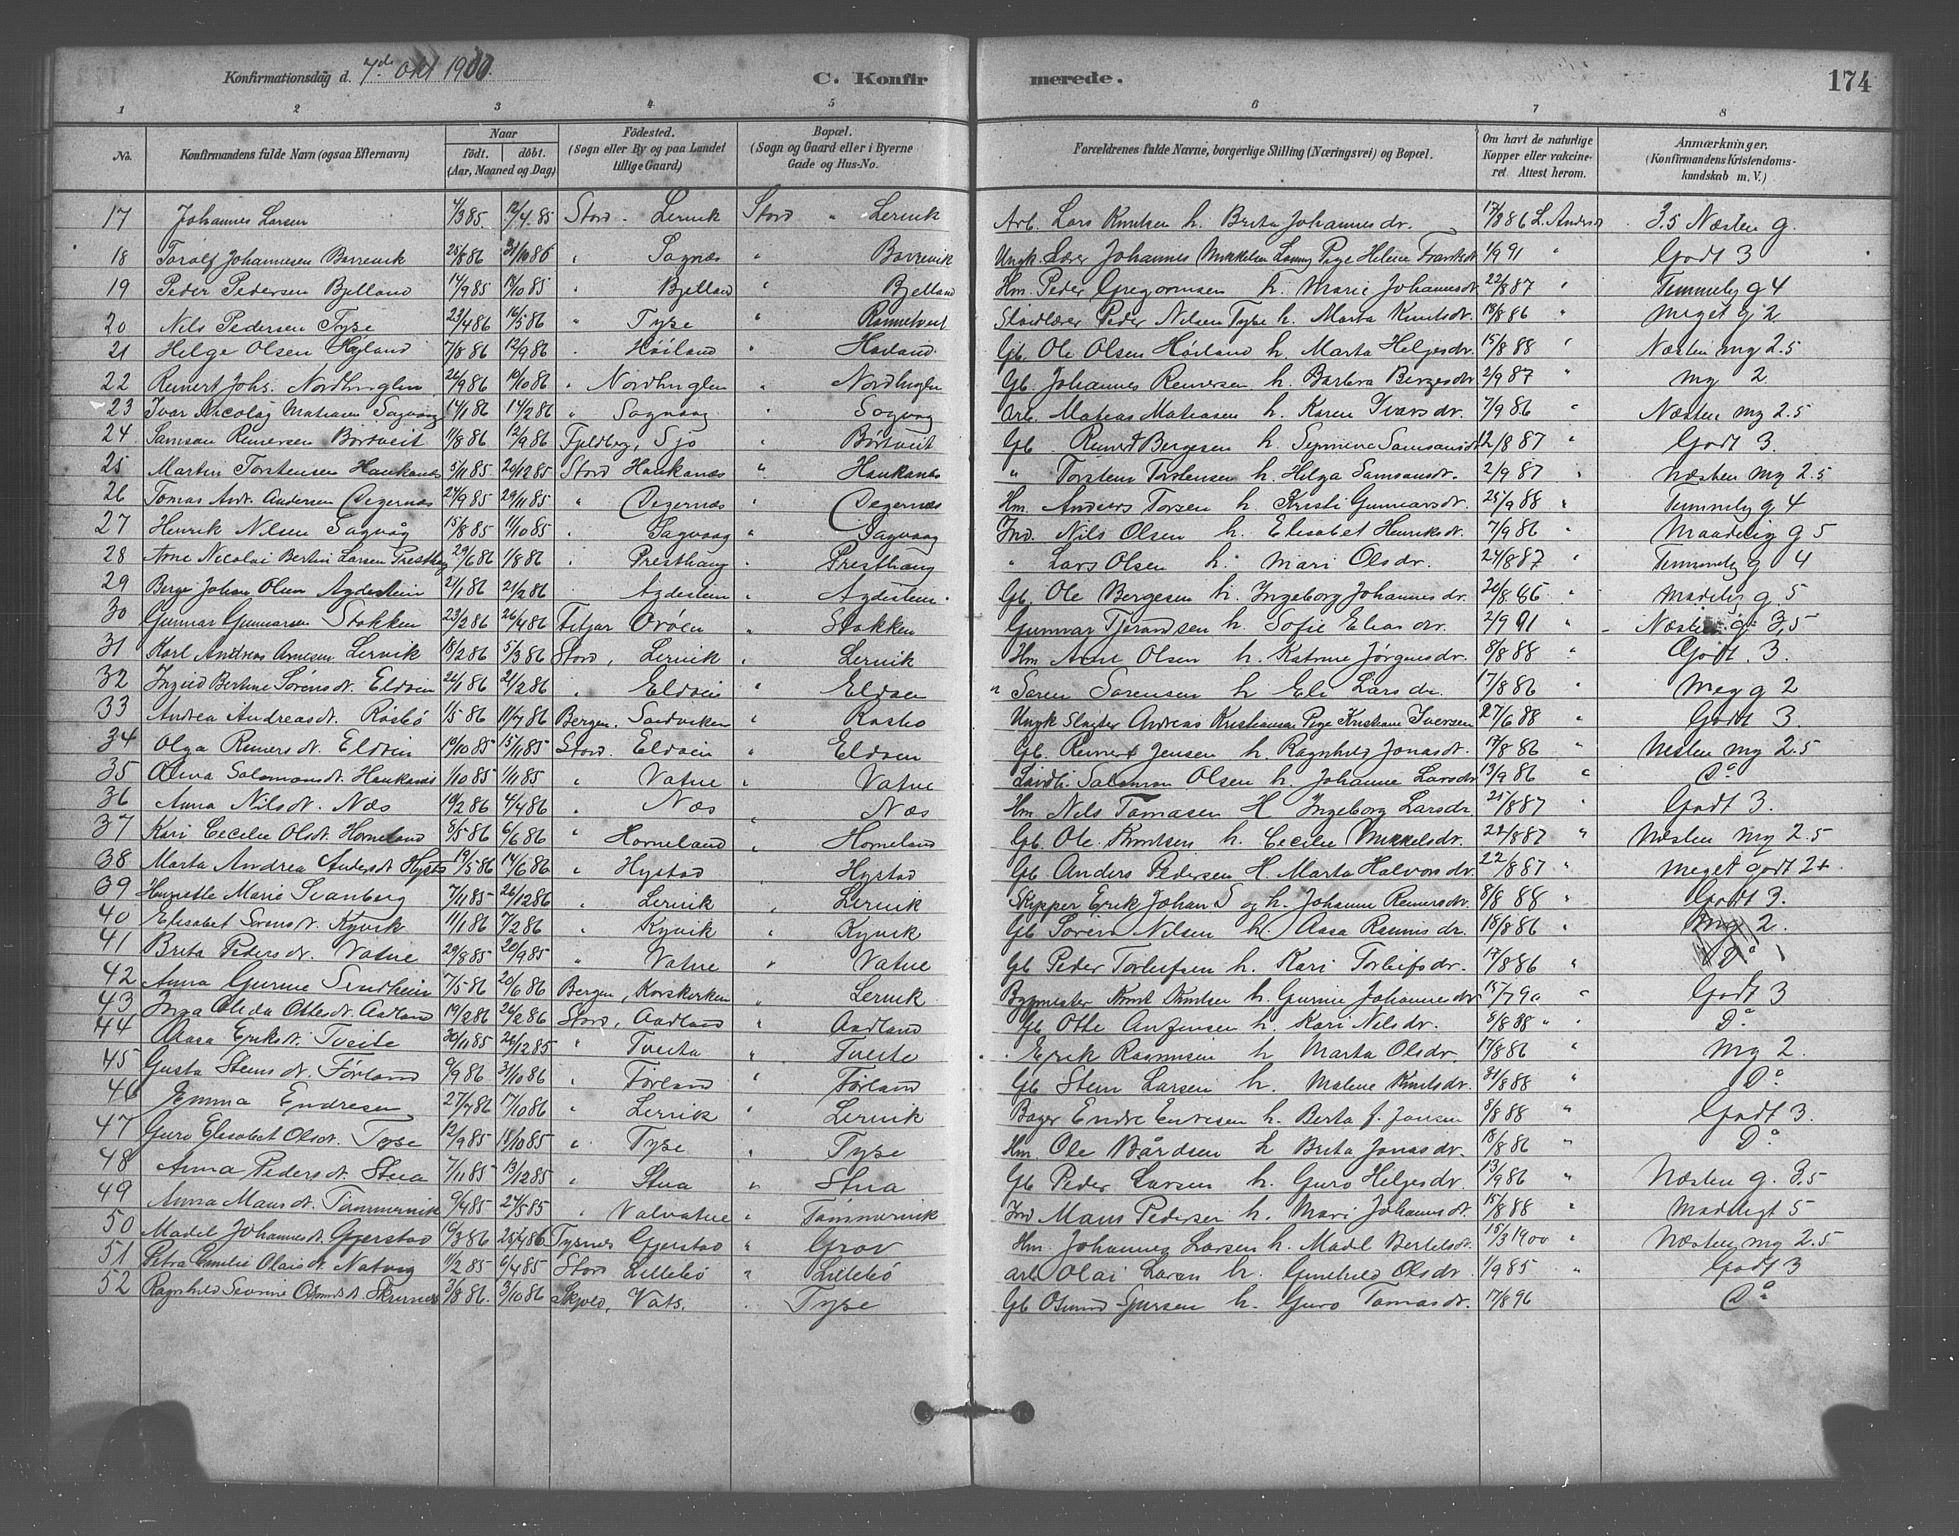 Konfirmationsdag d. 7de Okt 1900. C. Konfirmerede. 174
1 2 3 4 5 6 7 8
No. Konfirmandens fulde Navn (ogsaa Efternavn) Naar födt. döbt. (Aar, Maaned og Dag) Födested. (Sogn eller By og paa Landet tillige Gaard) Bopæl. (Sogn og Gaard eller i Byerne Gade og Hus-No. Forældrenes fulde Navne, borgerlige Stilling (Næringsvei) og Bopæl. Om havt de naturlige Kopper eller vakcineret. Attest herom. Anmærkninger. (Konfirmandens Kristendomskundskab m. V.)
17 Johannes Larsen 4/3 85. 12/4. 85 Stord. Lervik Stord " Lervik Arb. Lars Knutsen h. Brita Johannesdr. 17/8 86 3.5 Næsten g.
18 Toralf Johannesen Borrevik 25/8 86 31/10 86 " Sagnæs " Borrevik Ungk. Lærer Johannes Mikkelsen Pige Helene 1/9 91 " Godt 3
19 Peder Pedersen Bjelland 14/9 85 19/10 85 " Bjelland " Bjelland Hm. Peder Gregoriusen h. Marie Johannesdr 22/8 87 " Temmelig g 4
20 Nils Pedersen Tyse 23/4 86 16/5 86 " Tyse " Rommetveit Peder Nilsen Tyse h. Marta Knutsdr. 18/8 86 " meget g 2
21 Helge Olsen Høyland 7/8 86 12/9 86 " Höiland " Hoiland Gb. Ole Olsen Höiland h. Marta Helgesdr. 15/8 88 " Næsten mg 2.5
22 Reinert Johs. Nordhuglen 26/9 86 10/10 86 " Nordhuglen " Nordhuglen Gb. Johannes Reinersen h. Barbra Bergesdr 2/9 87 " mg 2
23 Ivar Nicolay Matiasen Sagvaag 14/1 86 14/2 86 " Sagvaag " Sagvag Arb. Matias Matiasen h. Karen Ivarsdr. 7/9 86 " Næsten mg 2.5
24 Samson Reinersen Börtveit 11/8 86 12/9 86 Fjeldberg, Sjo " Börtveit Gb. Reinert Bergesen h. Synneve Samsonsdr 12/8 87 " Godt 3.
25 Martin Torstensen Haukanes 5/11 85 20/12 85 Stord Haukanæs " Haukanes " Torsten Torstensen h. Helga Samsonsdr. 2/9 87 " Næsten mg 2.5
26 Tomas Andr. Andersen Degernæs 24/9 85 29/11 85 " Degernæs " Degernæs Hm. Anders Torsen h. Kristi Gunnarsdr. 25/9 88 " Temmelig g 4
27 Henrik Nilsen Sagvåg 15/8 85 11/10 85 " Sagvaag " Sagvaag Ind. Nils Olsen h. Elisabet Henriksdr. 7/9 86 " Maadelig g 5
28 Arne Nicolai Bertin Larsen Presthaug 29/6 86 1/8 86 " Presthaug " Presthaug " Lars Olsen h. Mari Olsdr. 24/8 87 " Temmelig g 4
29 Berge Johan Olsen Agdestein 21/1 86 21/2 86 " Agdestein " Agdestein. Gb. Ole Bergesen h. Ingeborg Johannesdr. 20/8 86 " Maadelig g. 5
30 Gunnar Gunnarsen Stokken 23/2 86 26/4 86 Fitjar Oröen " Stokken Gunnar Tjerandsen h. Sofie Eliasdr. 2/9 91 " Næsten g. 3,5
31 Karl Andreas Arnesen Lervik 18/2 86 5/3 86 Stord, Lervik " Lervik Hm Arne Olsen h. Katrine Jörgensdr. 8/8 88 " Godt. 3.
32 Ingrid Bertine Sörensdr. Eldøin 26/1 86 21/2 86 " Eldøin " Eldøen " Sören Sörensen h Eli Larsdr. 17/8 86 " Meg g 2
33 Andrea Andreasdt. Rösbö 1/5 86 11/7 86 Bergen. Sandviken " Rosbö Ungk Slagter Andreas Kristiansen Pige Kristiane Iversen 27/6 88 " Godt 3.
34 Olga Reinersdt. Eldøin 19/10 85 15/11 85 Stord. Eldøin " Eldøen Gb. Reinert Jensen h. Ragnhild Jonasdr. 17/8 86 " Nesten mg 2.5
35 Olina Salomonsdt. Haukanes 1/10 85 1/11 85 " Vatne " Vatne Salomon Olsen h. Johanne Larsdr 13/9 86 " Do
36 Anna Nilsdt. Næs 19/2 86 4/4 86 " Næs " Næs Hm. Nils Tomasen H Ingeborg Larsdr. 25/8 87 " Godt 3.
37 Kari Cecilie Olsdt. Horneland 5/5 86 6/6 86 " Horneland " Horneland Gb. Ole Knutsen h. Cecilie Mikkelsdr. 22/8 87 " Næsten mg 2.5
38 Marta Andrea Andersdt Hystø 19/5 86 14/6 86 " Hystad " Hystad Gb Anders Pedersen H. Marta Halvorsdr. 22/8 87 " meget godt 2+
39 Henriette Marie Svanberg 7/11 85 26/12 86 " Lervik " Lervik Skipper Erik Johan S og h. Johanne Reinersdr. 8/8 88 " Godt 3.
40 Elisabet Sörensdt. Kyvik 11/1 86 7/2 86 " Kyvik " Kyvik Gb Sören Nilsen h. Aasa Rasmusdr. 18/8 86 " mg 2.
41 Brita Pedersdr. Vatne 29/8 85 20/9 85 " Vatne " Vatne Gb Peder Torleifsen h. Kari Torleifsdr. 17/8 86 " Do
42 Anna Gurine Sundheim 7/5 86 20/6 86 Bergen, Korskirken " Lervik Bygmester Knut Knutsen h. Gurine Johannesdr 15/7 90 " Godt 3
43 Inga Olida Ottesdr. Aadland 19/2 86 26/2 86 Stord, Aadland " Aadland Gb Otte Anfinsen h. Kari Nilsdr. 8/8 88 " Do
44 Aasa Eriksdt. Tveite 30/11 85 26/12 85 " Tveita " Tveite Erik Rasmusen h Marta Olsdr. 17/8 86 " Mg 2.
45 Gusta Steinsdt. Förland 6/9 86 31/10 86 " Förland " Förland Gb Stein Larsen h. Malene Knutsdr. 31/8 88 " Do
46 Emma Endresen 27/7 86 17/10 86 " Lervik " Lervik Bager Endre Endresen h. Berta f. Jansen 8/8 88 " Godt 3.
47 Guro Elisabet Olsdt. Tyse 12/9 85 11/10 85 " Tyse " Tyse Hm. Ole Bårdsen h Brita Jonasdr. 18/8 86 " Do
48 Anna Pedersdt. Stua 7/11 85 13/12 85 " Stua " Stua Gb Peder Larsen h. Guro Helgesdr. 13/9 86 " Næsten g. 3,5
49 Anna Mansdt. Tömmervik 9/4 85 24/5 85 " Valvatne " Tömmervik Ind Mans Pedersen h. Mari Johannsdt. 15/8 88 " Maadeligt 5
50 Madel Johannesdt. Gjerstad 10/3 86 25/4 86 Tysnes Gjerstad " Grov Hm. Johannes Larsen h. Madel Bertelsdt. 15/3 1900 " Næsten mg 2.5
51 Petra Emilie Olaisdt. Natvig 11/2 85 6/4 85 Stord Lillebö " Lillebö Arb Olai Larsen h. Gunhild Olsdr. 1/9 85 " Godt 3
52 Ragnhild Severine Osmundsdt. 3/8 86. 3/10 86 Skjold, Vats. " Tyse Gb Osmund h. Guro Tomasdt. 17/8 96 Do